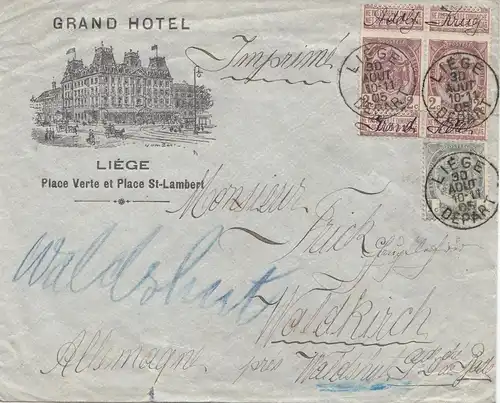 GRAND HOTEL
LIÈGE
Place Verte et Place St-Lambert
Imprimé
LIÈGE
30
AOUT
10-11
05
DÉPART
LIÈGE
30
AOUT
10-11
05
DÉPART
LIÈGE
30
AOUT
10-11
05
DÉPART
Monsieur
Frick
Waldshut
Waldkirch
Allemagne près Waldshut